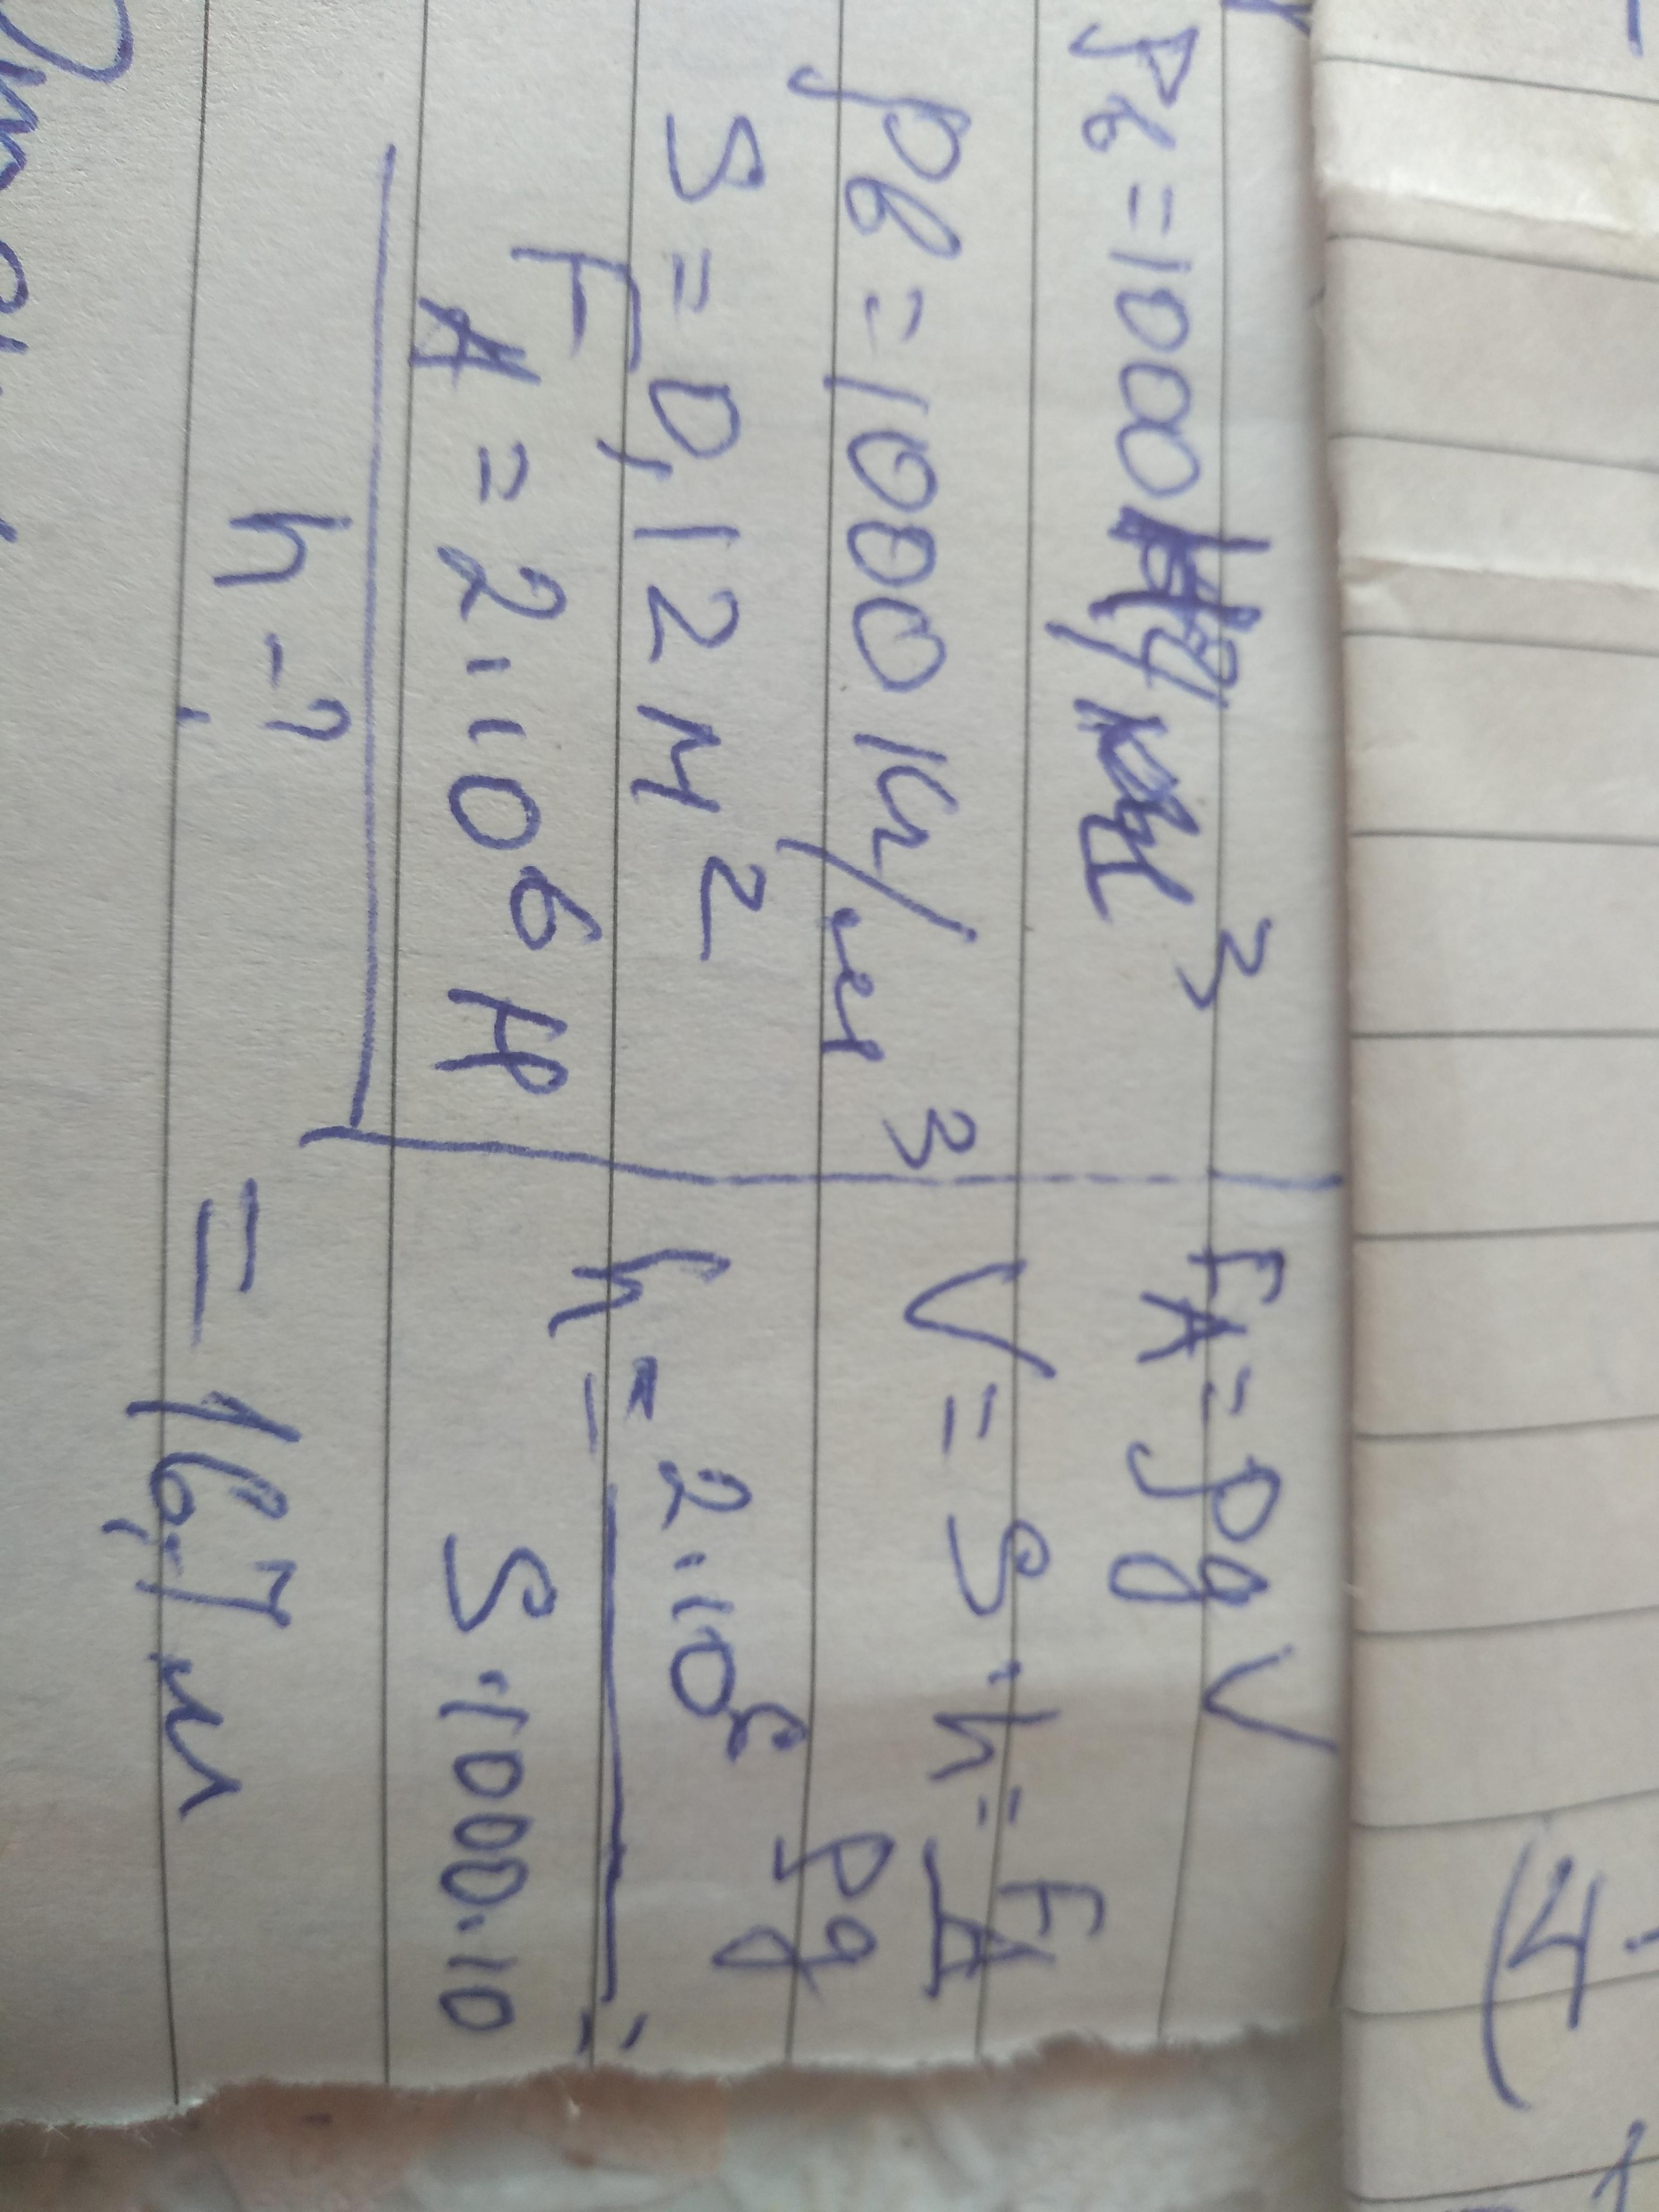 ρв = 1000 3
ρв = 1000 кг/м³
S = 0,12 м²
F A = 2·10⁶ Н
h - ?
FA = ρgV
V = S·h = FA/ρg
h = 2·10⁶ / S·1000·10 =
= 16,7 м
4)